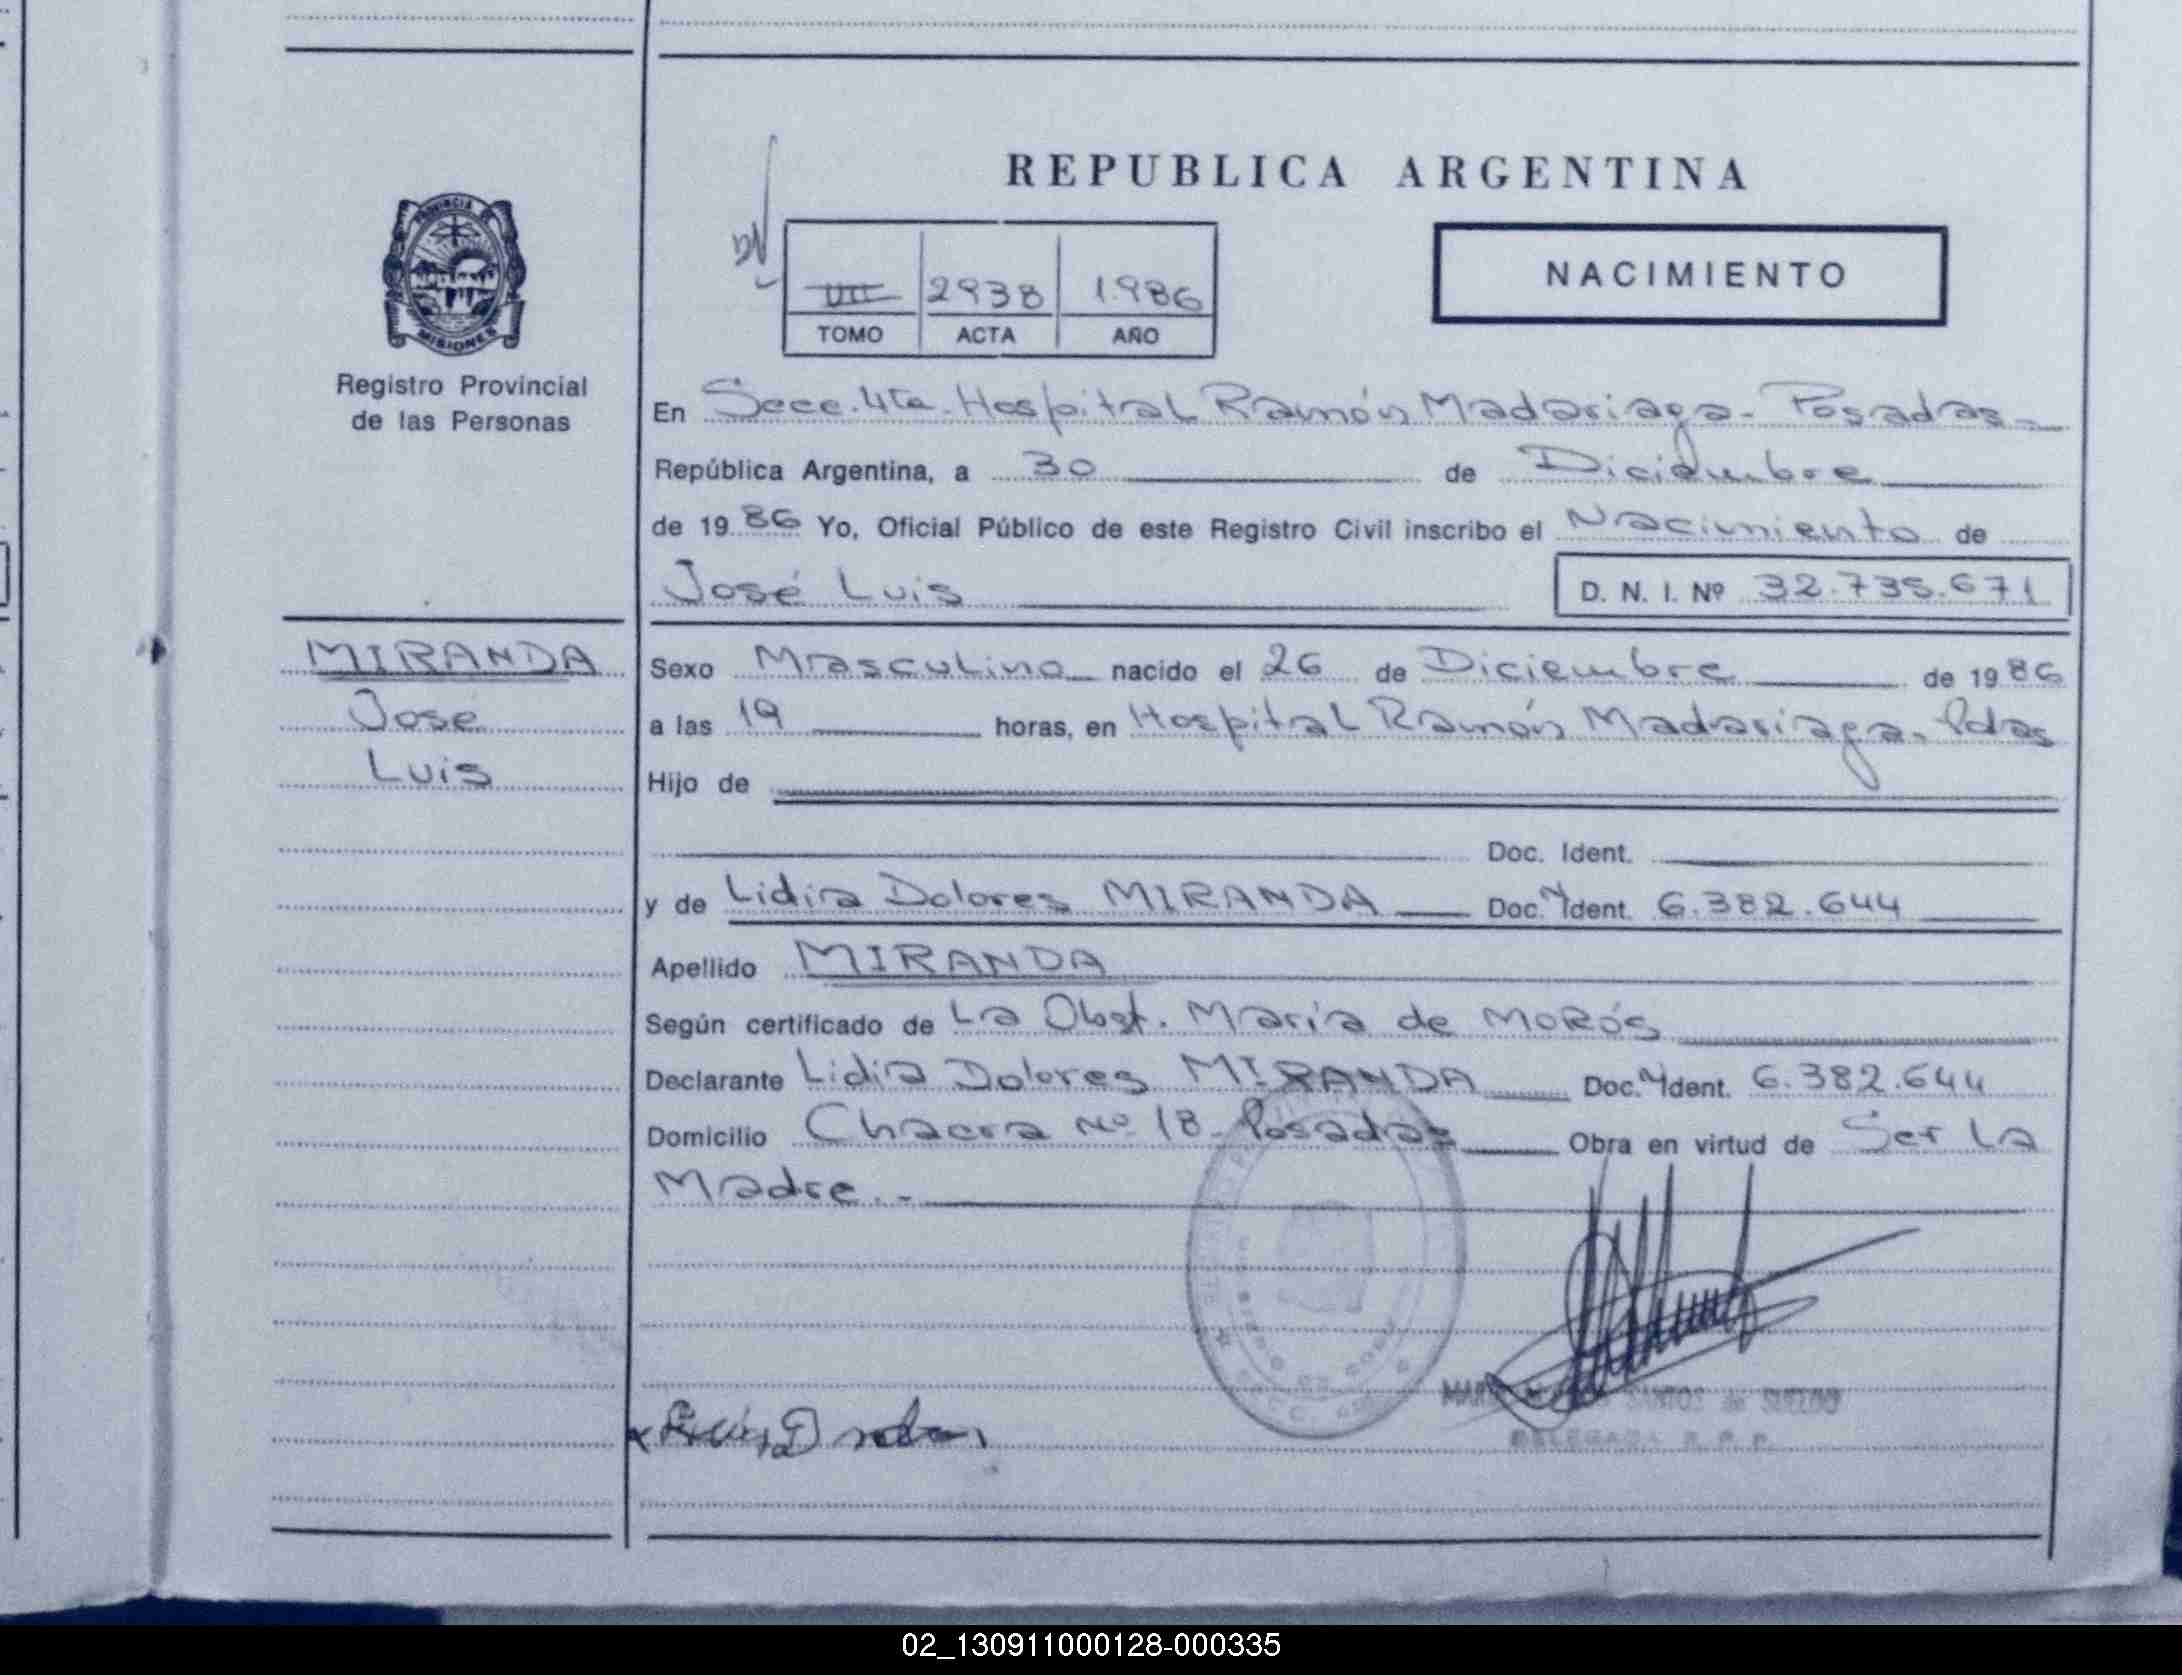 REPUBLICA ARGENTINA
PROVINCIA DE
MISIONES
Registro Provincial
de las Personas
VIII 2938 1.986
TOMO ACTA AÑO
NACIMIENTO
En Secc. 4ta. Hospital Ramón Madariaga - Posadas -
República Argentina, a 30 de Diciembre
de 1986 Yo, Oficial Público de este Registro Civil inscribo el Nacimiento de
José Luis D. N. I. Nº 32.735.671
MIRANDA
José
Luis
Sexo Masculino nacido el 26 de Diciembre de 1986
a las 19 horas, en Hospital Ramón Madariaga. Pdas
Hijo de
Doc. Ident.
y de Lidia Dolores MIRANDA Doc. Ident. 6.382.644
Apellido MIRANDA
Según certificado de La Obst. María de MORós
Declarante Lidia Dolores MIRANDA Doc. Ident. 6.382.644
Domicilio Chacra Nº 18 - Posadas Obra en virtud de Ser La
Madre. -
SANTOS de
DELEGADA R. P. P.
02_130911000128-000335